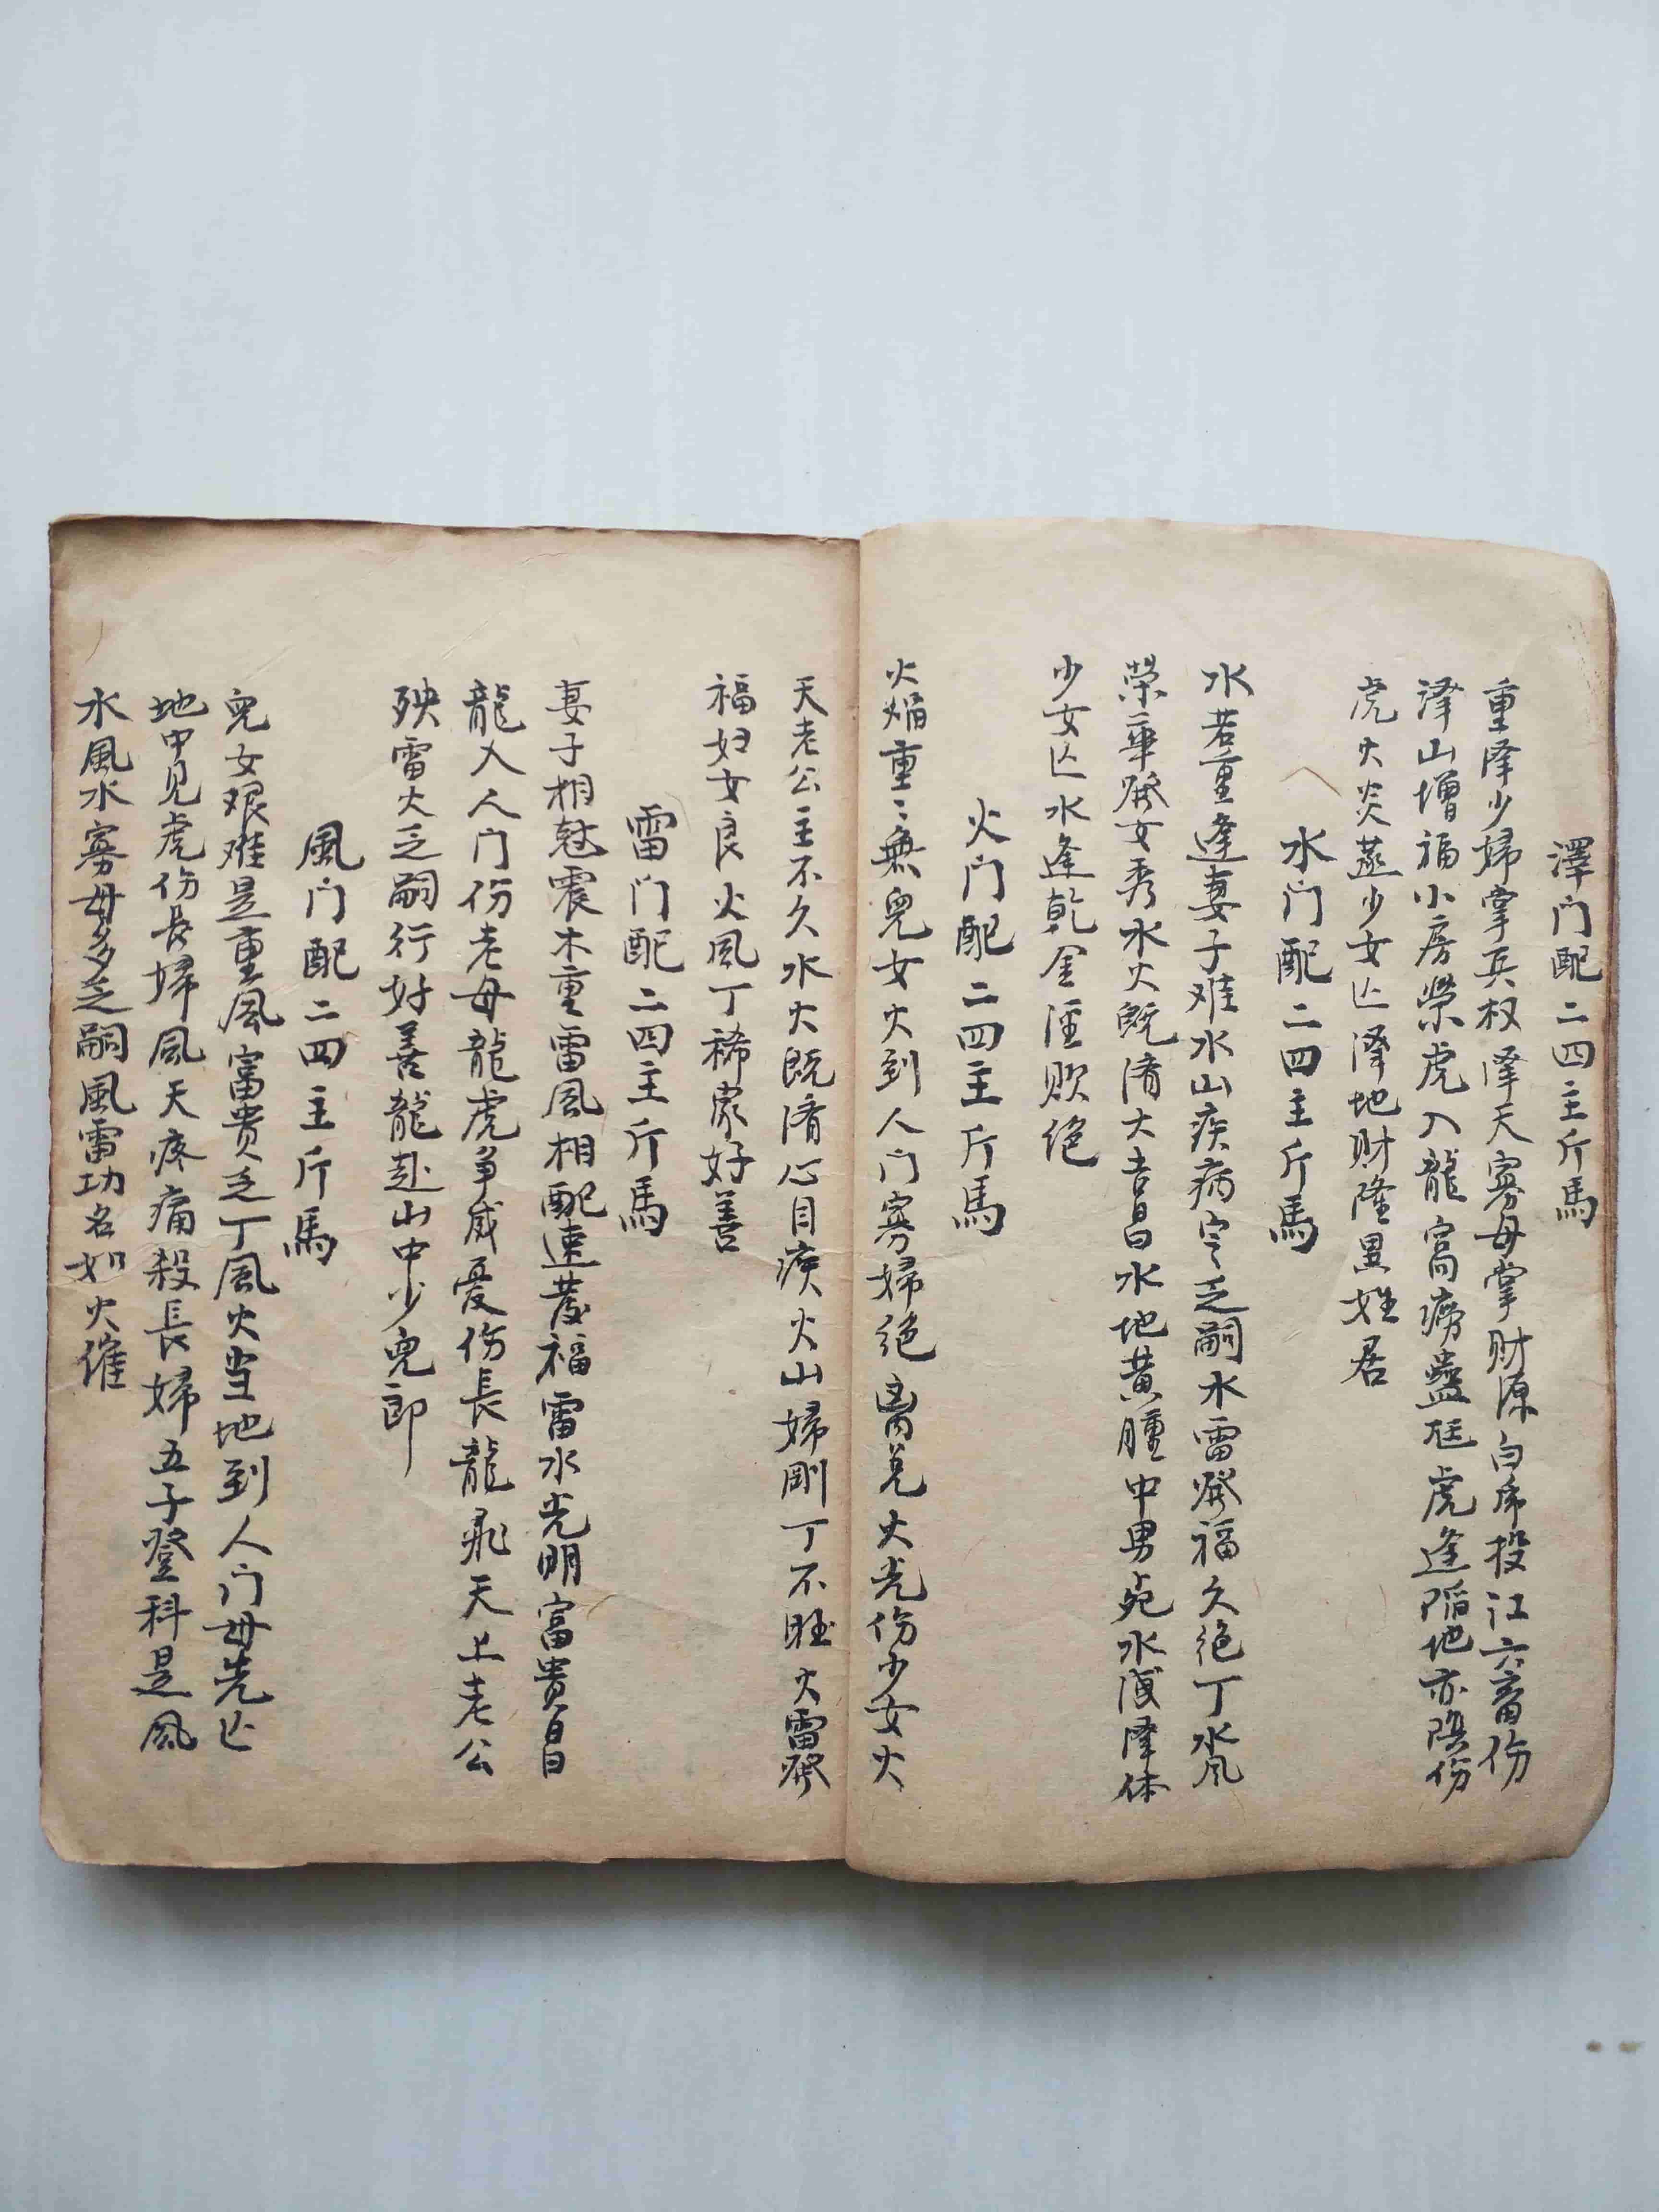 澤门配二四主斤馬
重澤少婦掌兵权澤天寡母掌财源白虎投江六畜伤
澤山增福小房榮虎入龍窩痨蠱尪虎逢陷地亦
虎火炎蒸少女亡澤地财隆異姓居
水门配二四主斤馬
水若重逢妻子难水山疾病定乏嗣水雷發福久絶丁水风
榮華發女秀水火既濟大吉昌水地黄腫中男死水澤体
少女亡水逢乾金淫败绝
火门配二四主斤馬
火焰重〻無兒女火到人门寡婦絶兑火光伤少女火
天老公主不久水火既濟心目疾火山婦剛丁不旺火雷發
福妇女良火风丁稀家好善
雷门配二四主斤馬
妻子相尅震木重雷風相配速發福雷水光明富貴昌
龍入人门伤老母龍虎争威憂伤長龍飛天上老公
殃雷火乏嗣行好善龍赴山中少兒郎
風门配二四主斤馬
兒女艰难是重風富贵乏丁風火当地到人门母先亡
地中见虎伤長婦风天疼痛殺長婦五子登科是風
水風水寡母多乏嗣風雷功名如火催